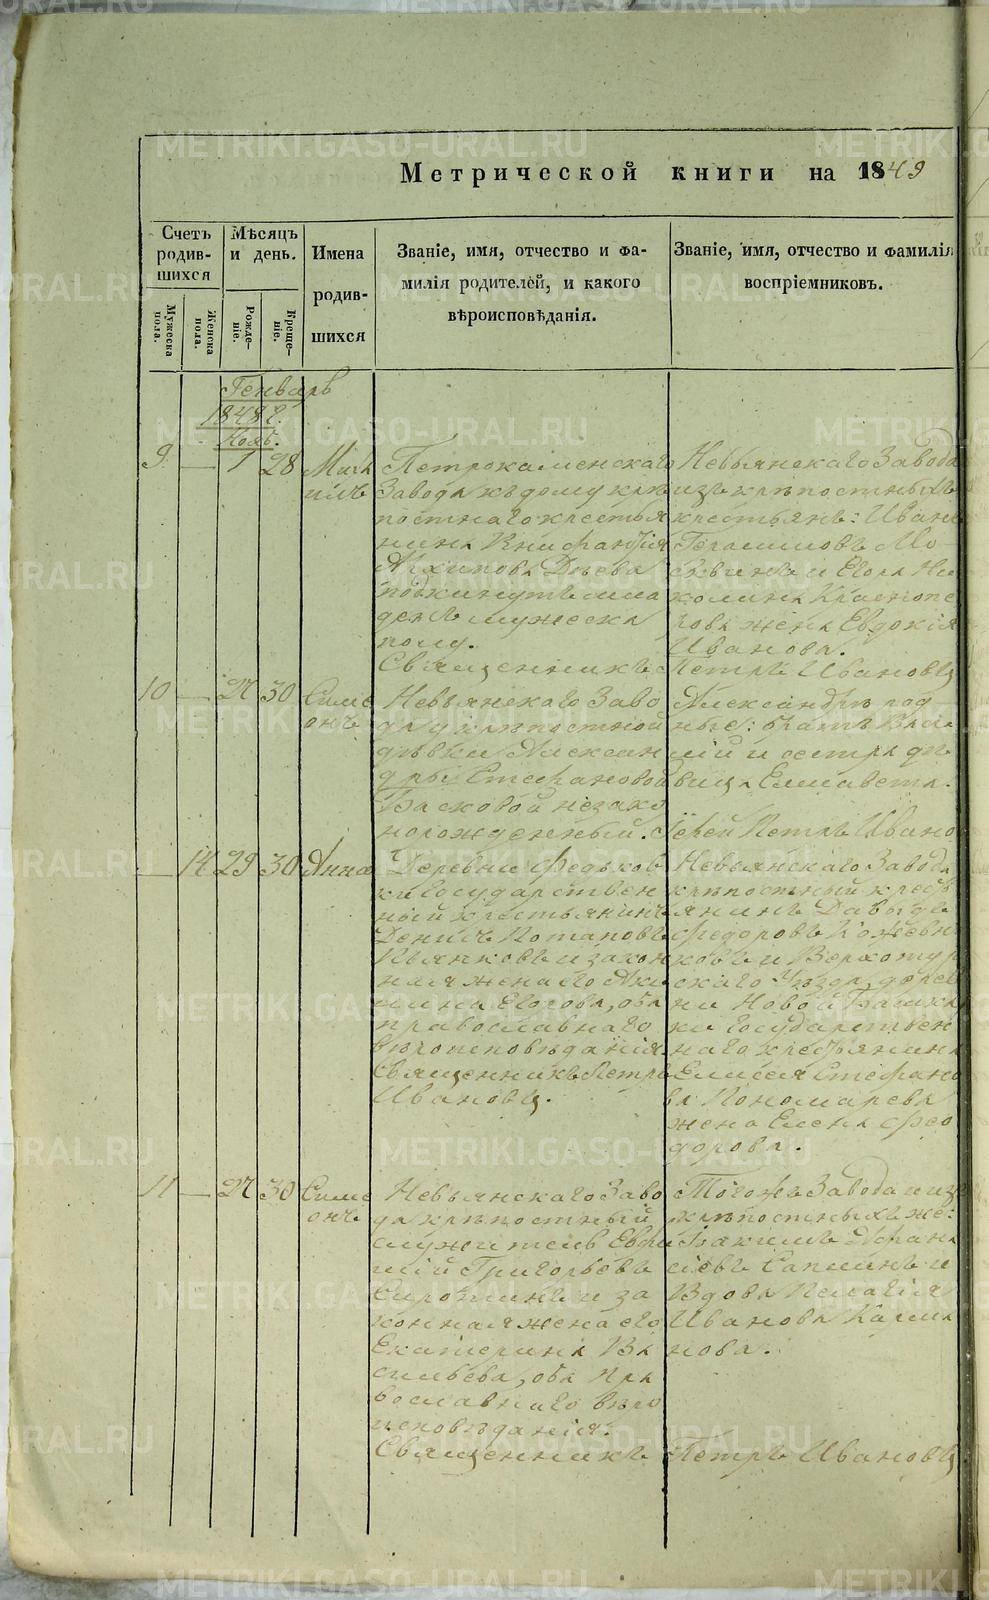 METRIKI.GASO-URAL.RU
Метрической книги на 1849
Счетъ родив-шихся
Мѣсяцъ и день.
Имена родив-шихся
Званіе, имя, отчество и фа-
милія родителей, и какого
вѣроисповѣданія.
Званіе, имя, отчество и фамилія
воспріемниковъ.
Мужеска пола.
Женска пола.
Рожде-ніе.
Креще-ніе.
Генварь
1848 г.
Нояб.
9 — 1 28 Миха
илъ
Петрокаменскаго
Завода къ дому крѣ
постнаго крестья
нина
Архипова
подкинутъ мла
денъ мужеска
полу.
Невьянскаго Завода
изъ крѣпостныхъ
крестьянъ: Иванъ
Герасимовъ Мо
сквинъ и Егора Ни
колина Красnопе
рова жена Евдокія
Иванова.
Священникъ Петръ Ивановъ
10 — 27 30 Симе
онъ
Невьянскаго Заво
да у крѣпостной
дѣвки Алексан
дры Стефановой
Басковой незако
норожденный.
Александры род
ные: братъ
и сестра дѣ
вица Елисавета.
Іерей Петръ Ивано
— 14 29 30 Анна
Деревни Федьков
ки Государствен
ный крестьянинъ
Денисъ Потаповъ
Пьянковъ и закон
ная жена его Аки
лина Егорова, оба
православнаго
вѣроисповѣданія.
Священникъ Петръ
Ивановъ.
Невьянскаго Завода
крѣпостный кресть
янинъ Давыдъ
Федоровъ Кожевни
ковъ и Верхотур
скаго Уѣзда, дерев
ни Новой Башкар
ки Государствен
наго крестьянина
Елисея Стефано
ва Пономарева
жена Елена Фео
дорова.
11 — 27 30 Симе
онъ
Невьянскаго Заво
да крѣпостный
служитель Евфи
мій Григорьевъ
Сиротинъ и за
конная жена его
Екатерина Ва
сильева, оба пра
вославнаго вѣро
исповѣданія.
Тогожъ Завода и изъ
крѣпостныхъ же:
Іакимъ Афана
сіевъ Сапинъ и
Вдова Пелагія
Иванова
Священникъ Петръ Ивановъ